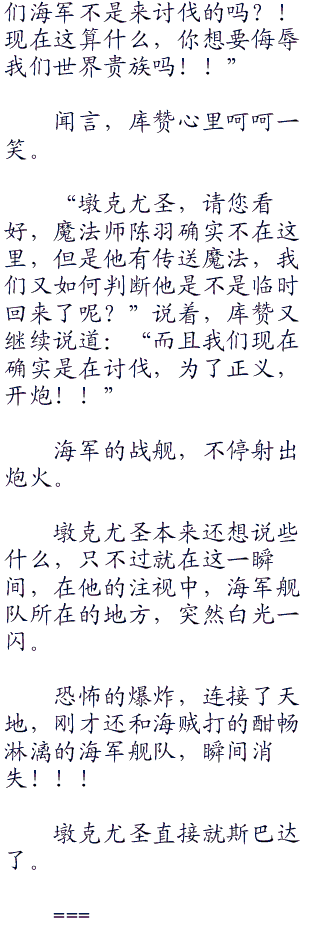 们海军不是来讨伐的吗？！
现在这算什么，你想要侮辱
我们世界贵族吗！！”
闻言，库赞心里呵呵一
笑。
“墩克尤圣，请您看
好，魔法师陈羽确实不在这
里，但是他有传送魔法，我
们又如何判断他是不是临时
回来了呢？”说着，库赞又
继续说道：“而且我们现在
确实是在讨伐，为了正义，
开炮！！”
海军的战舰，不停射出
炮火。
墩克尤圣本来还想说些
什么，只不过就在这一瞬
间，在他的注视中，海军舰
队所在的地方，突然白光一
闪。
恐怖的爆炸，连接了天
地，刚才还和海贼打的酣畅
淋漓的海军舰队，瞬间消
失！！！
墩克尤圣直接就斯巴达
了。
===